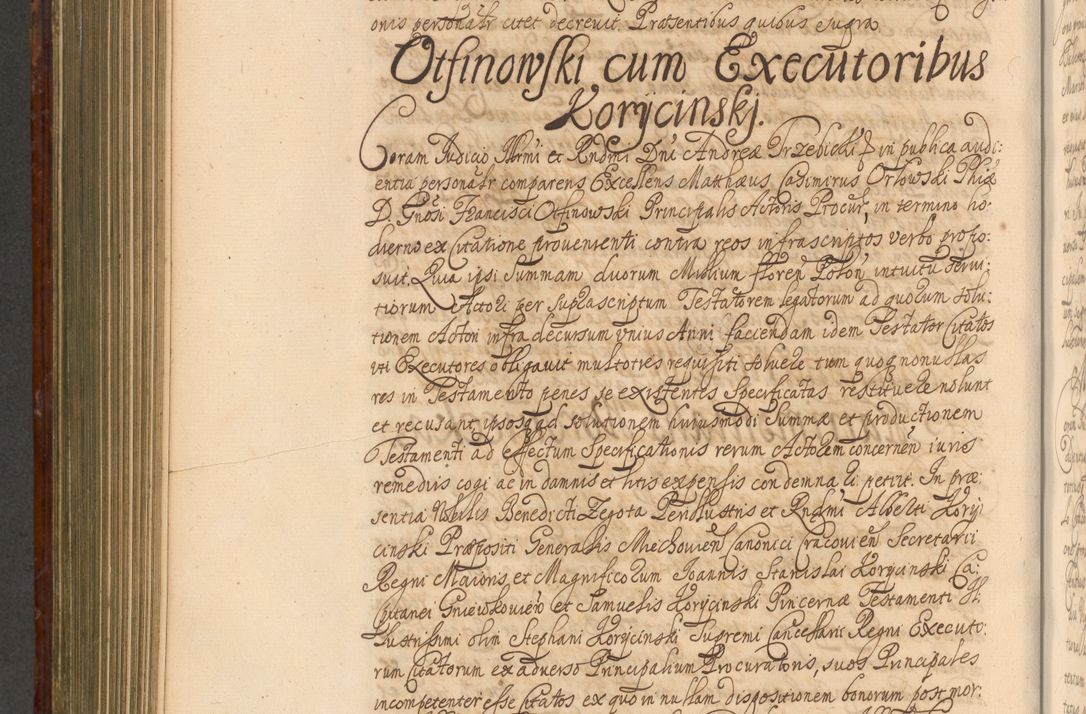 onis personalr citet decrevit. Præsentibus quibus supra.
Otfinowski cum Executoribus
Korycinskj.
Coram Judicio Illrmi et Rndmi Dni Andreæ Trzebicki in publica audi:
entia personalr comparens Excellens Matthæus Casimirus Orlowski Phiæ
D. Gnosi Francisci Otfinowski Principalis Actoris Procur, in termino ho:
dierno ex Citatione provenienti contra reos infrascriptos verbo propo:
suit. Quia ipsi Summam duorum Millium floren Polon intuitu servi:
tiorum Actori per suprascriptum Testatorem legatorum ad quorum solu:
tionem Actori infra decursum unius Anni faciendam idem Testator Citatos
uti Executores obligavit multoties requisiti solvere tum quoq nonullas
res in Testamento penes se existentes Specificatas restituere nolunt
et recusant, ipsosq ad solutionem huiusmodi Summæ et productionem
Testamenti ad effectum Specificationis rerum Actorem concernen iuris
remediis cogi ac in damnis et litis expensis condemnari petiit. In præ:
sentia Nobilis Benedicti Zegota Perillustris et Rndmi Alberti Kory:
cinski Præpositi Generalis Miechovien Canonici Cracovien Secretarii
Regni Maioris, et Magnificorum Joannis Stanislai Korycinski Ca:
pitanei Gniewkovien et Samuelis Korycinski Pincernæ Testamenti Il:
lustrissimi olim Stephani Korycinski Supremi Cancellarii Regni Executo:
rum Citatorum ex adverso Principalium Procuratoris, suos Principales
incompetenter esse Citatos ex quo in nullam dispositionem bonorum post mor: